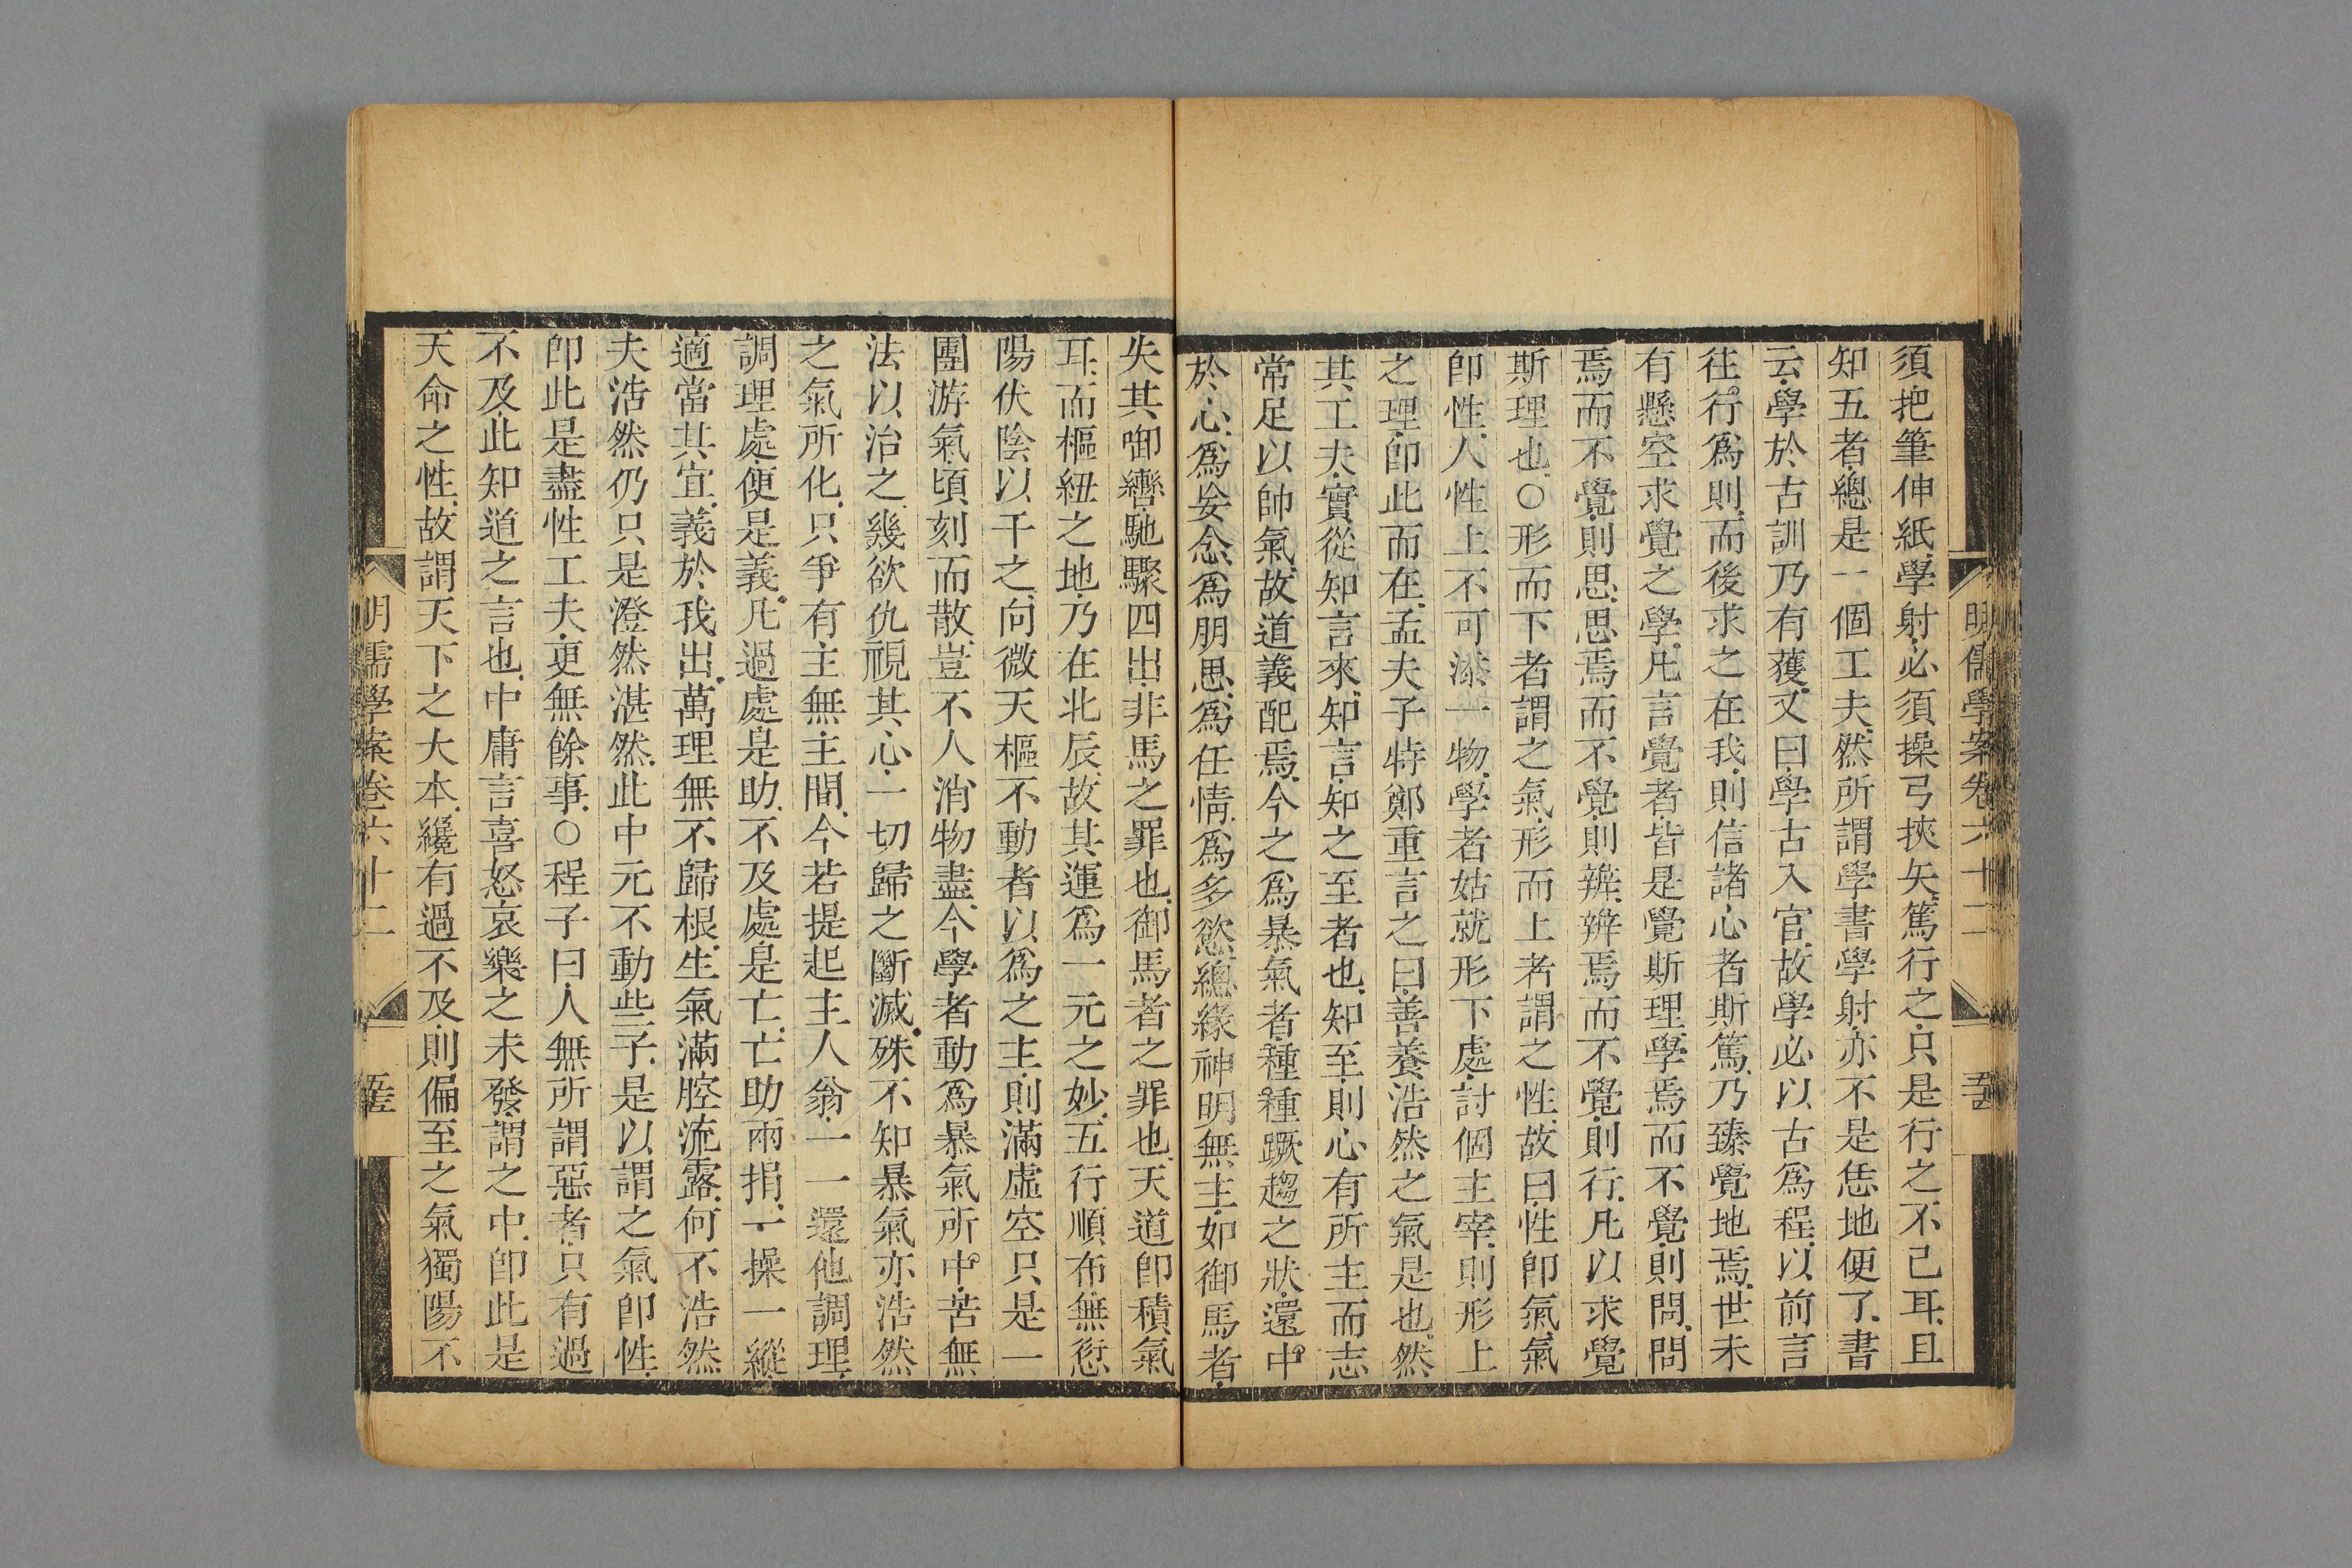 須把筆伸紙學射必須操弓挾矢篤行之只是行之不已耳且
知五者總是一個工夫然所謂學書學射亦不是恁地便了書
云學於古訓乃有獲又曰學古入官故學必以古爲程以前言
往行爲則而後求之在我則信諸心者斯篤乃臻覺地焉世未
有懸空求覺之學凡言覺者皆是覺斯理學焉而不覺則問問
焉而不覺則思思焉而不覺則辨辨焉而不覺則行凡以求覺
斯理也○形而下者謂之氣形而上者謂之性故曰性卽氣氣
卽性人性上不可添一物學者姑就形下處討個主宰則形上
之理卽此而在孟夫子特鄭重言之曰善養浩然之氣是也然
其工夫實從知言來知言知之至者也知至則心有所主而志
常足以帥氣故道義配焉今之爲暴氣者種種蹶趨之狀還中
於心爲妄念爲朋思爲任情爲多慾總緣神明無主如御馬者
明儒學案卷六十二
失其啣轡馳驟四出非馬之罪也御馬者之罪也天道卽積氣
耳而樞紐之地乃在北辰故其運爲一元之妙五行順布無愆
陽伏陰以干之向微天樞不動者以爲之主則滿虛空只是一
團游氣頃刻而散豈不人消物盡今學者動爲暴氣所中苦無
法以治之幾欲仇視其心一切歸之斷滅殊不知暴氣亦浩然
之氣所化只爭有主無主間今若提起主人翁一一還他調理
調理處便是義凡過處是助不及處是亡亡助兩捐一操一縱
適當其宜義於我出萬理無不歸根生氣滿腔流露何不浩然
夫浩然仍只是澄然湛然此中元不動些子是以謂之氣卽性
卽此是盡性工夫更無餘事○程子曰人無所謂惡者只有過
不及此知道之言也中庸言喜怒哀樂之未發謂之中卽此是
天命之性故謂天下之大本纔有過不及則偏至之氣獨陽不
明儒學案卷六十二